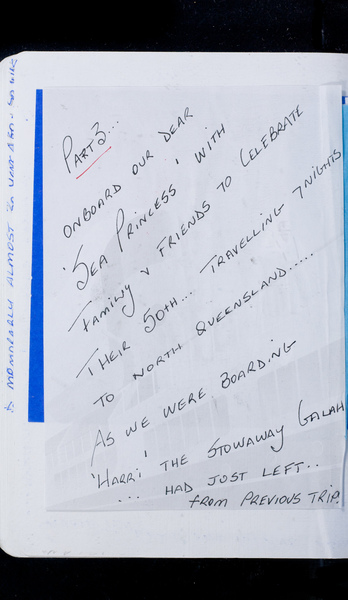 PART 3...
ONBOARD OUR DEAR
'SEA PRINCESS', WITH
FAMILY & FRIENDS TO CELEBRATE
THEIR 50TH... TRAVELLING 7 NIGHTS
TO NORTH QUEENSLAND.....
AS WE WERE BOARDING
'HARRI' THE STOWAWAY GALAH
... HAD JUST LEFT..
FROM PREVIOUS TRIP.
ALMOST